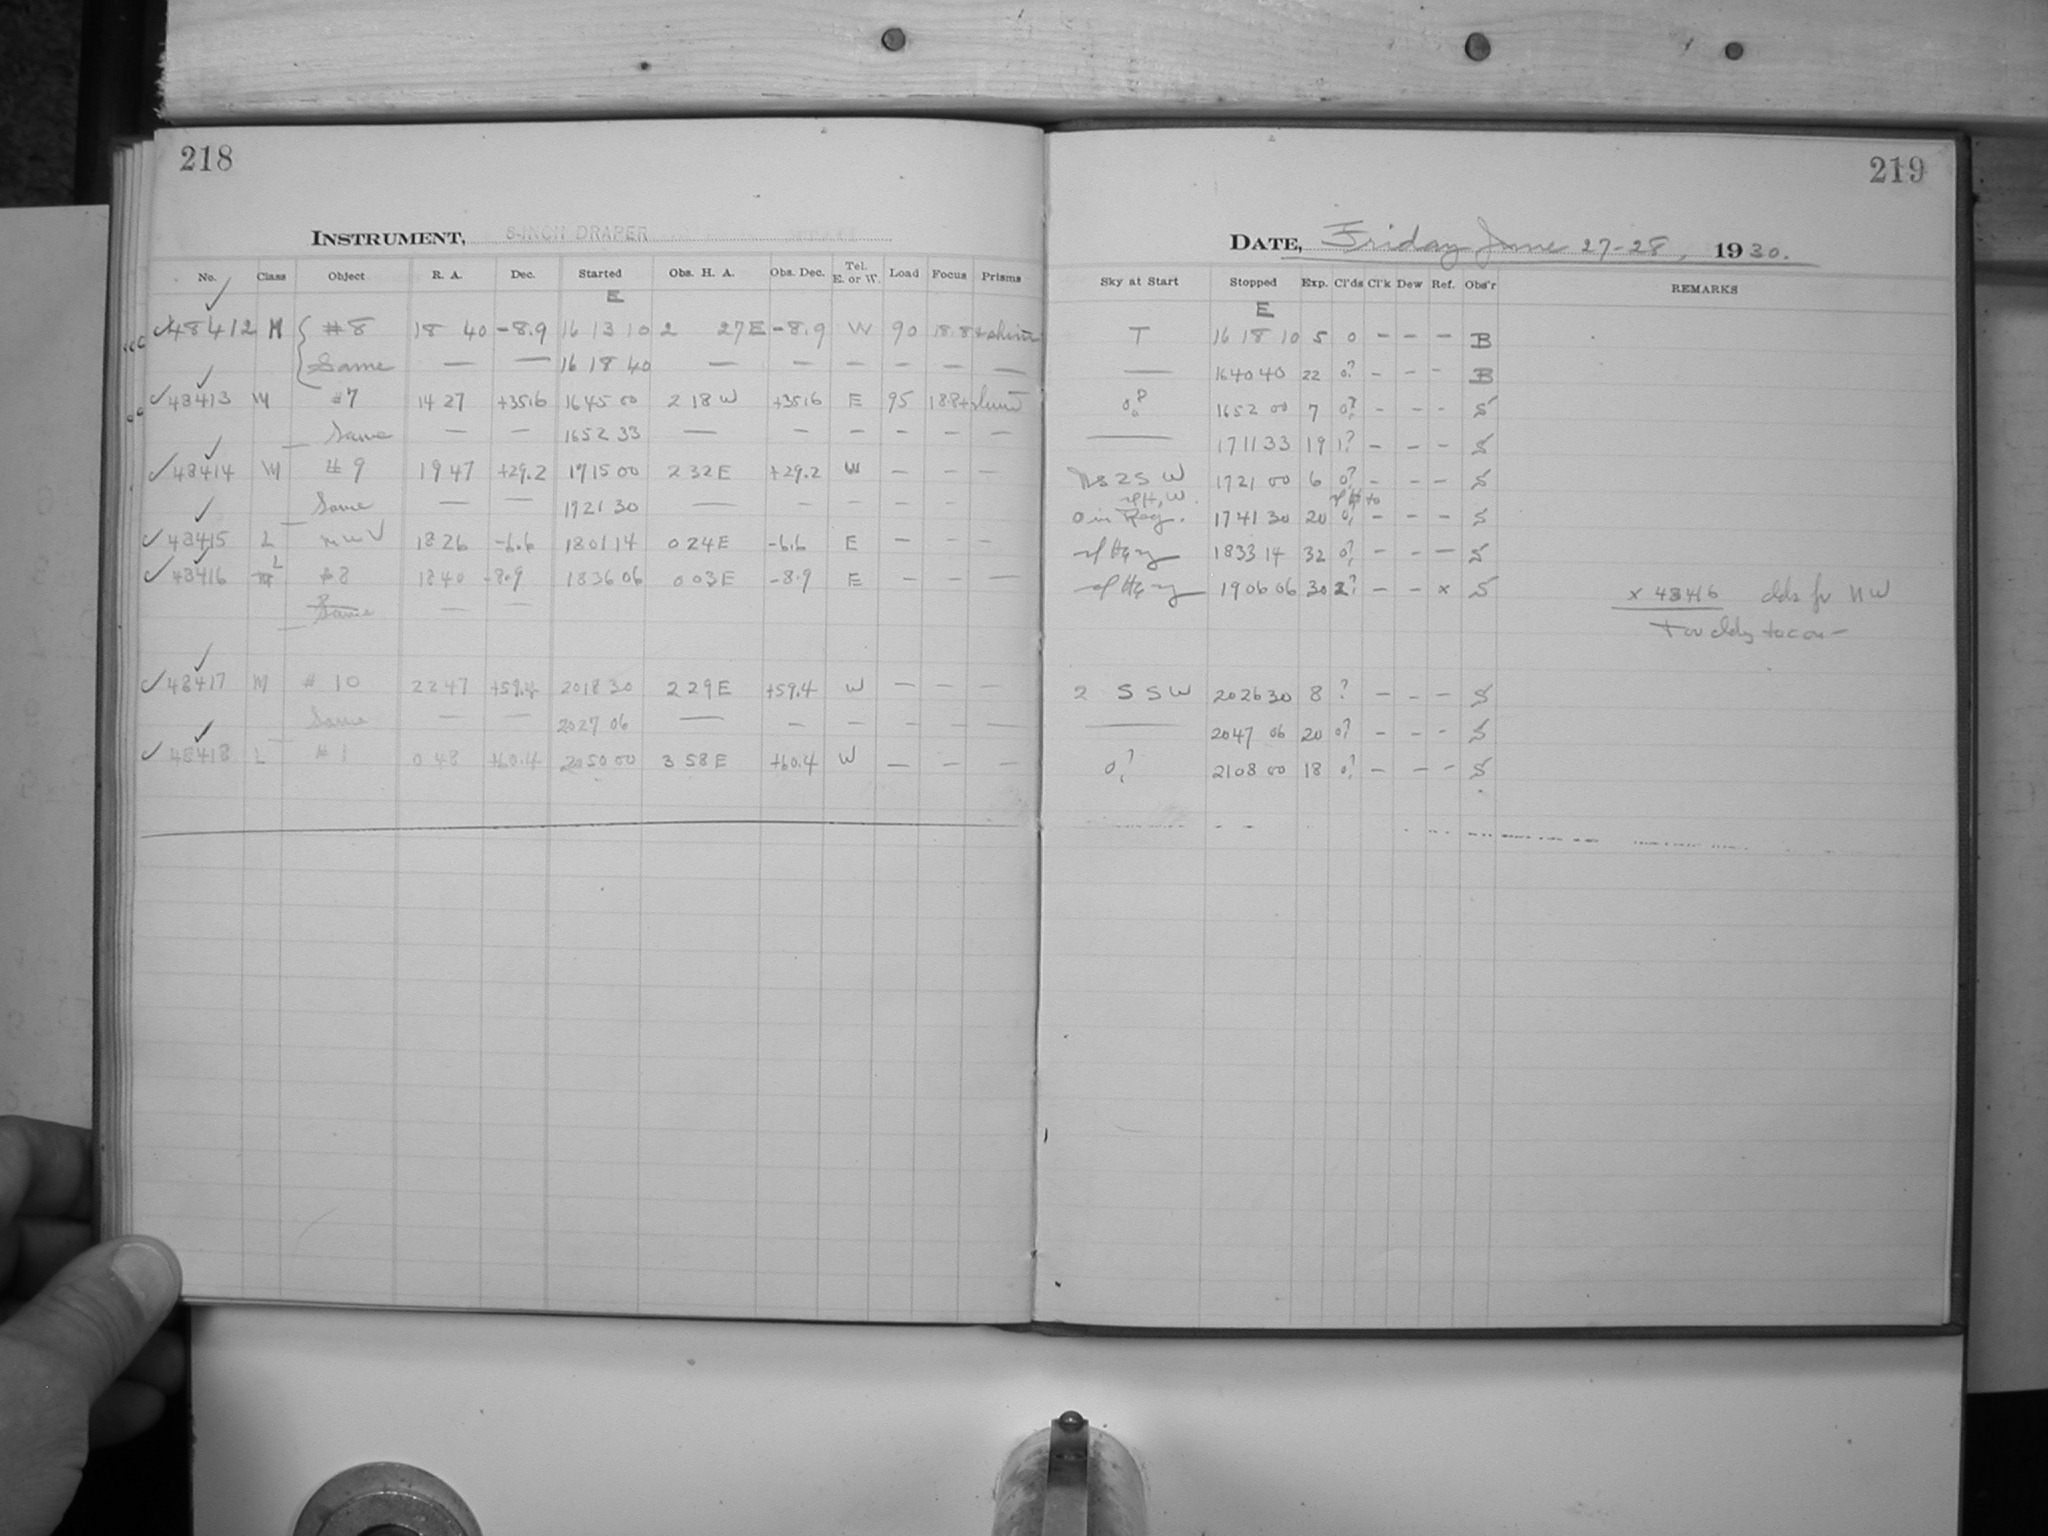 218
INSTRUMENT, 8-INCH DRAPER
No. Class Object R. A. Dec. Started Obs. H. A. Obs. Dec. Tel. E. or W. Load Focus Prisms
E
48412 M #8 18 40 -8.9 16 13 10 2 27E -8.9 W 90 18.8
Same — — 16 18 40 — — — — — —
48413 M #7 14 27 +35.6 16 45 00 2 18 W +35.6 E 95 18.8
Same — — 16 52 33 — — — — — —
48414 M #9 19 47 +29.2 17 15 00 2 32 E +29.2 W — — —
Same — — 17 21 30 — — — — — —
48415 L 18 26 -6.6 18 01 14 0 24 E -6.6 E — — —
48416 L #8 18 40 -8.9 18 36 06 0 03 E -8.9 E — — —
Same — —
48417 M # 10 22 47 +59.4 20 18 30 2 29 E +59.4 W — — —
Same — — 20 27 06 — — — — — —
48418 L # 1 0 48 +60.4 20 50 00 3 58 E +60.4 W — — —
219
DATE, Friday June 27-28, 1930.
Sky at Start Stopped Exp. Cl'ds Cl'k Dew Ref. Obs'r REMARKS
E
T 16 18 10 5 0 — — — B
— 16 40 40 22 0? — — — B
0? 16 52 00 7 0? — — — S
— 17 11 33 19 1? — — — S
2 S W 17 21 00 6 0? — — — S
0 in 17 41 30 20 0? — — — S
18 33 14 32 0? — — — S
19 06 06 30 2? — — x S x 48416 clds fr NW
2 S S W 20 26 30 8 ? — — — S
— 20 47 06 20 0? — — — S
0? 21 08 00 18 0? — — — S